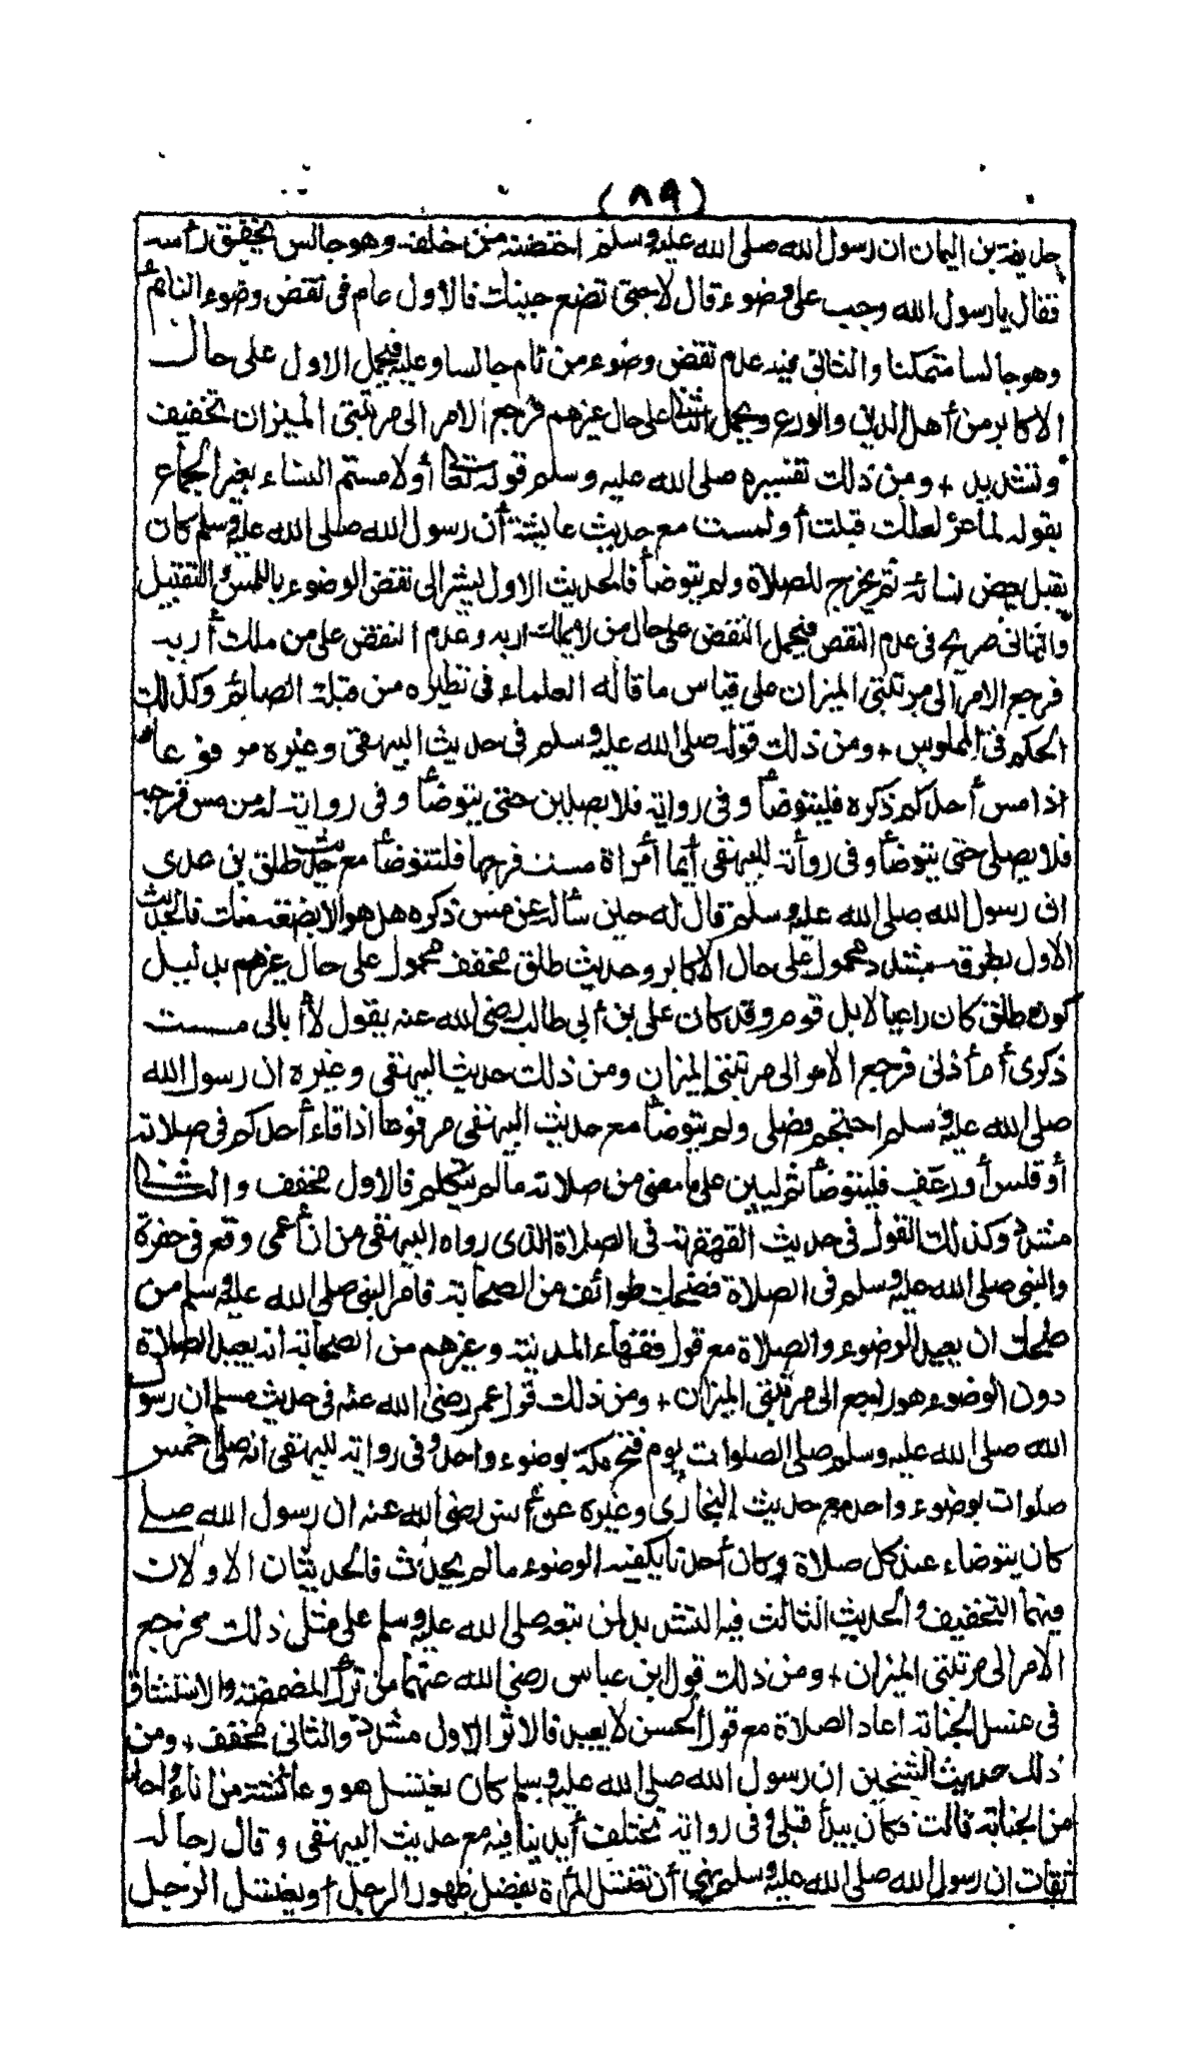 (٨٩)
حذيفة بن اليمان ان رسول الله صلى الله عليه وسلم احتضنه من خلفه وهو جالس يخفق رأسه
فقال يا رسول الله وجب على وضوء قال لا حتى تضع جنبك فالأول عام فى نقض وضوء النائم
وهو جالسا متمكنا والثانى مفيد عدم نقض وضوء من نام جالسا وعليه فيحمل الاول على حال
الاكابر من أهل الدين والورع ويحمل الثانى على حال غيرهم فرجع الامر الى مرتبتى الميزان تخفيف
وتشديد + ومن ذلك تفسيره صلى الله عليه وسلم قوله تعالى أو لامستم النساء بغير الجماع
بقوله لماعز لعلك قبلت أو لمست مع حديث عايشة أن رسول الله صلى الله عليه وسلم كان
يقبل بعض نسائه ثم يخرج للصلاة ولم يتوضأ فالحديث الاول يشير الى نقض الوضوء باللمس والتقبيل
والثانى صريح فى عدم النقض فيحمل النقض على حال من لا يملك اربه وعدم النقض على من ملك أربه
فرجع الامر الى مرتبتى الميزان على قياس ما قاله العلماء فى نظيره من قبلة الصائم وكذلك
الحكم فى الملموس + ومن ذلك قوله صلى الله عليه وسلم فى حديث البيهقى وغيره مرفوعا
اذا مس أحدكم ذكره فليتوضأ وفى رواية فلا يصلين حتى يتوضأ وفى رواية له من مس فرجه
فلا يصلى حتى يتوضأ وفى رواية للبيهقى أيما أمرأة مست فرجها فلتتوضأ مع حديث طلق بن عدى
ان رسول الله صلى الله عليه وسلم قال له حين سأله عن مس ذكره هل هو الا بضعة منك فالحديث
الاول بطرقه مشدد محمول على حال الاكابر وحديث طلق مخفف محمول على حال غيرهم بدليل
كون طلق كان راعيا لابل قومه وقد كان على بن أبى طالب رضى الله عنه يقول لا أبالى مسست
ذكرى أم أذنى فرجع الامر الى مرتبتى الميزان ومن ذلك حديث البيهقى وغيره ان رسول الله
صلى الله عليه وسلم احتجم فصلى ولم يتوضأ مع حديث البيهقى مرفوعا اذا قاء أحدكم فى صلاته
أو قلس أو رعف فليتوضأ ثم ليبن على ما مضى من صلاته ما لم يتكلم فالاول مخفف والثانى
مشدد وكذلك القول فى حديث القهقهة فى الصلاة الذى رواه البيهقى من ان أعمى وقع فى حفرة
والنبى صلى الله عليه وسلم فى الصلاة فضحك طوائف من الصحابة فأمر النبى صلى الله عليه وسلم من
ضحك ان يعيد الوضوء والصلاة مع قول فقهاء المدينة وغيرهم من الصحابة انه يعيد الصلاة
دون الوضوء هو راجع الى مرتبتى الميزان + ومن ذلك قول عمر رضى الله عنه فى حديث مسلم ان رسول
الله صلى الله عليه وسلم صلى الصلوات يوم فتح مكة بوضوء واحد وفى رواية للبيهقى انه صلى خمس
صلوات بوضوء واحد مع حديث البخارى وغيره عن أنس رضى الله عنه ان رسول الله صلى
كان يتوضاء عند كل صلاة وكان أحدنا يكفيه الوضوء ما لم يحدث فالحديثان الاولان
فيهما التخفيف والحديث الثالث فيه التشديد لمن تبعه صلى الله عليه وسلم على مثل ذلك فرجع
الامر الى مرتبتى الميزان + ومن ذلك قول ابن عباس رضى الله عنهما من ترك المضمضة والاستنشاق
فى غسل الجنابة اعاد الصلاة مع قول الحسن لا يعيد فالاثر الاول مشدد والثانى مخفف + ومن
ذلك حديث الشيخين ان رسول الله صلى الله عليه وسلم كان يغتسل هو وعائشة من اناء واحد
من الجنابة قالت فكان يبدأ قبلى وفى رواية تختلف أيدينا فيه مع حديث البيهقى وقال رجاله
ثقات ان رسول الله صلى الله عليه وسلم نهى أن تغتسل المرأة بفضل طهور الرجل أو يغتسل الرجل